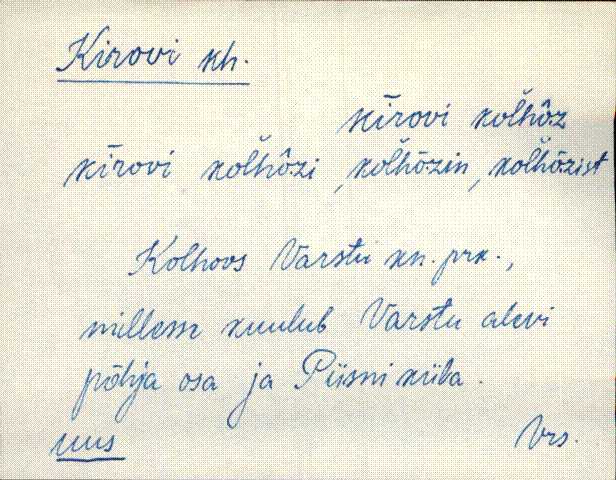 Kirovi kh.
kīrovi kol̆hôz
kīrovi kol̆hôzi, kol̆hōzin, kol̆hōzist
Kolhoos Varstu kn. prk.,
millesse kuulub Varstu alevi
põhja osa ja Püsni küla.
uus Vrs.